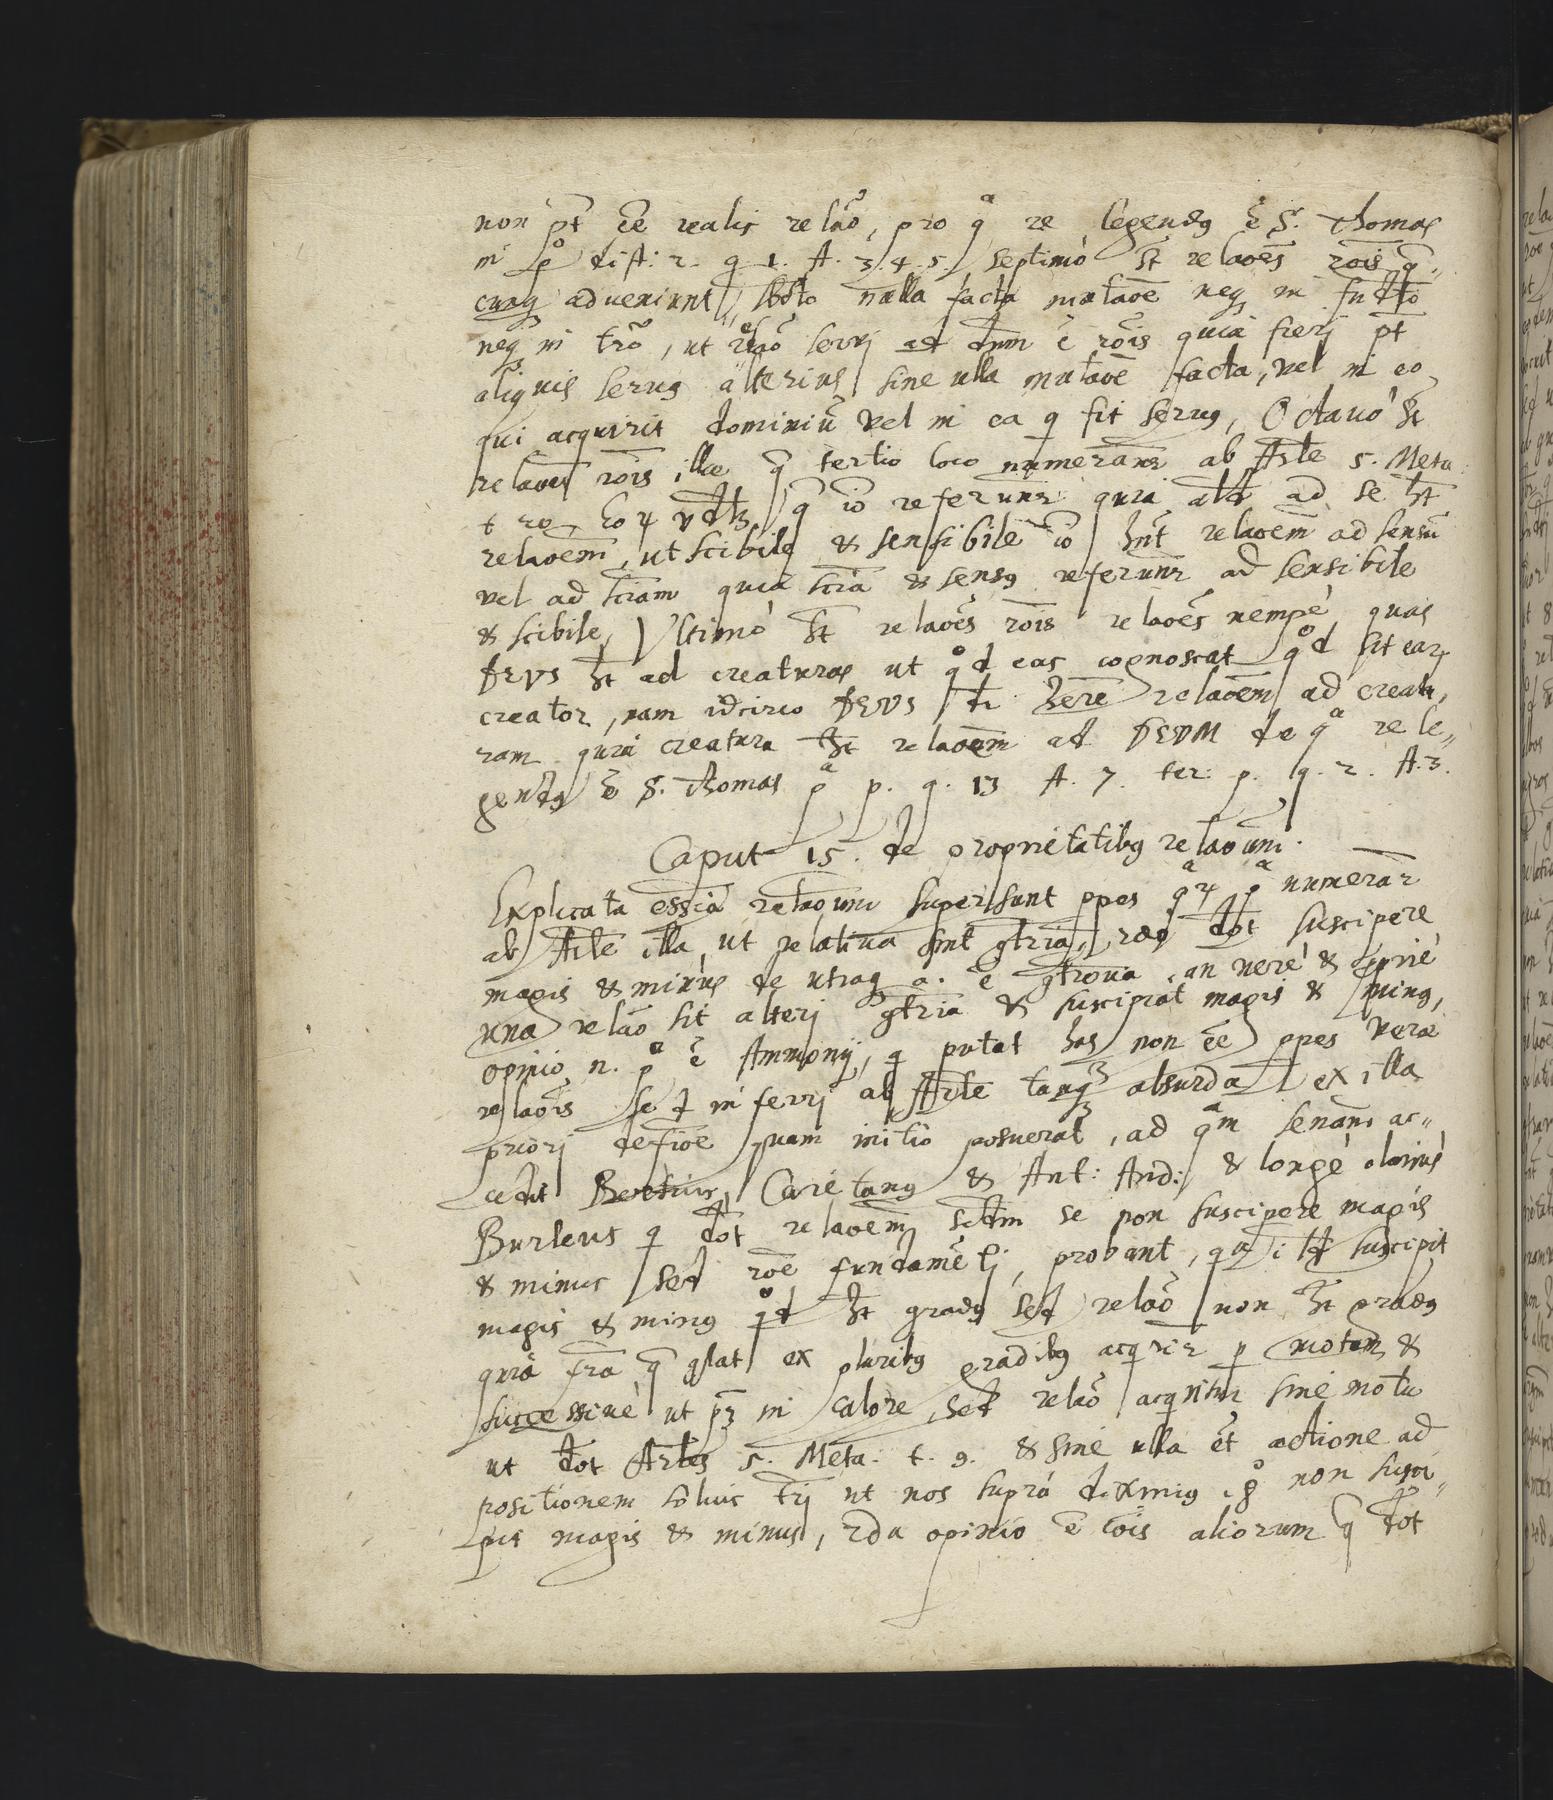 non pt̄ ēē realis relāo, pro qᵃ re legendꝰ ē S. Thomas
in pº dist: 2. q 1. A. 3. 4. 5. septimò st̄ relaōēs rōis q̄
cunqꝫ adveniunt sbᵗo nulla facta mutaōē neqꝫ in fundtō
neqꝫ in trō, ut relaō servj ad dnm ē rōis quia fierj pt̄
aliquis servꝰ alterius sine ulla mutaōē facta, vel in eo
qui acquirit dominiū vel in ea q fit servꝰ, Octavò st̄
relaōēs rōis illae q̄ tertio loco numerant̄r ab Arle 5. Meta.
t 20 q̄ iō referunt̄r quia ad se ht̄
relaōem, ut scibile & sensibile iō hn̄t relaōem ad sensū
vel ad sciam quia scia & sensꝰ referunt̄r ad sensibile
& scibile, Vltimò st̄ relaōēs rōis relaōēs nempè quas
DEVS ht̄ ad creaturas ut qºd eas cognoscat qºd sit earꝫ
creator, nam idcirco DEVS dr̄ hēre relaōem ad creatu„
ram quia creatura ht̄ relaōem ad DEVM de qᵃ re le„
gendꝰ ē S. Thomas pᵃ p. q. 13 A. 7. ter. p. q. 2. A. 3.
Caput 15. de proprietatibꝰ relaōum.
Explicata essia relaōum supersunt ppes numerant̄r
ab Arle illa, ut relativa sint gtria, dōt suscipere
magis & minus de utraqꝫ a. ē gtrova, an verè & pprie
una relaō sit alterj gtria & suscipiat magis & minꝰ,
opinio n. pᵃ ē Ammonij, q putat has non ēē ppes verae
relaōis sed inferrj ab Arle tanqꝫ absurda ex illa
priorj defiōe quam initio posuerat, ad qᵃm senam ac„
cedit Caietanꝰ & Ant: And: & longè olarius
Burleus q dōt relaōem scdm se non suscipere magis
& minus sed rōē fundamētj, probant, qᵃ id suscipit
magis & minꝰ qºd ht̄ gradꝰ sed relaō non ht̄ gradꝰ
quia fra q̄ gstat ex pluribꝰ gradibꝰ acqrir̄ p motum &
successivè ut pꝫ in calore, sed relaō acqritur sine motu
ut dōt Arles 5. Meta. t. 9. & sine ulla ēt actione ad
positionem solius trj ut nos suprà diximꝰ, gº non susci„
pit magis & minus, 2da opinio ē cōis aliorum q̄ dōt